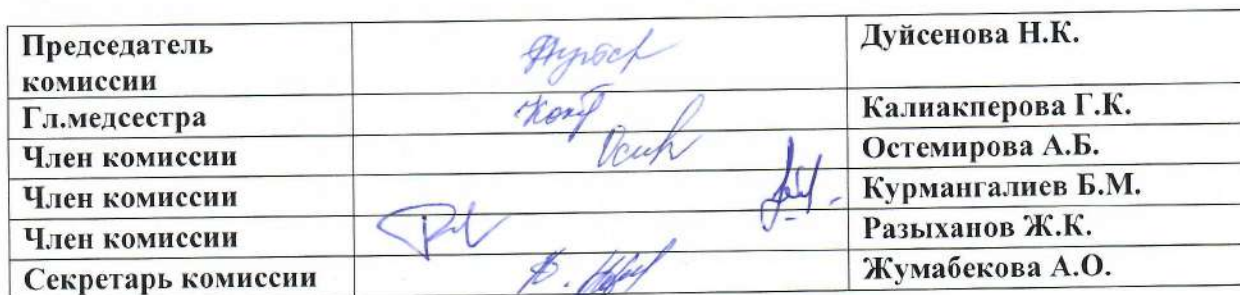 Председатель комиссии Дуйсенова Н.К.
Гл.медсестра Калиакперова Г.К.
Член комиссии Остемирова А.Б.
Член комиссии Курмангалиев Б.М.
Член комиссии Разыханов Ж.К.
Секретарь комиссии Жумабекова А.О.